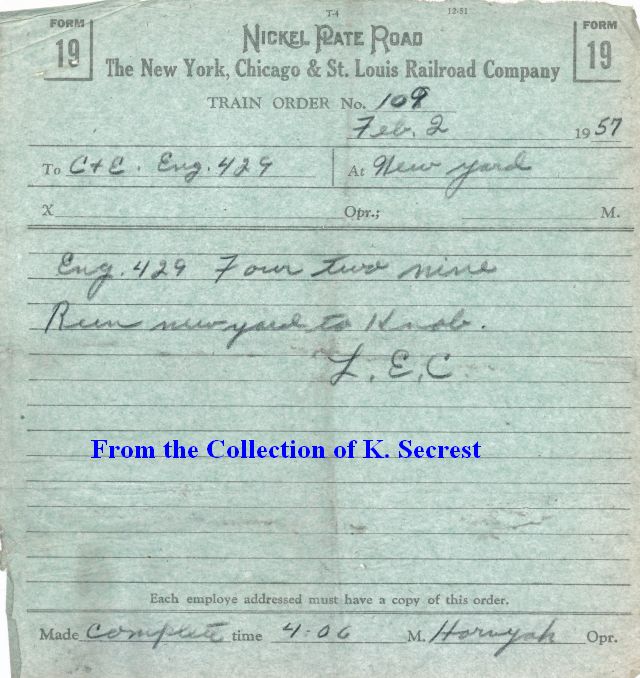 T-4 12-51
FORM 19 NICKEL PLATE ROAD FORM 19
The New York, Chicago & St. Louis Railroad Company
TRAIN ORDER No. 109
Feb. 2 1957
To C+E. Eng. 429 At New yard
X Opr.; M.
Eng. 429 Four two nine
Run new yard to Knob.
L. E. C.
From the Collection of K. Secrest
Each employe addressed must have a copy of this order.
Made complete time 4:06 M. Opr.